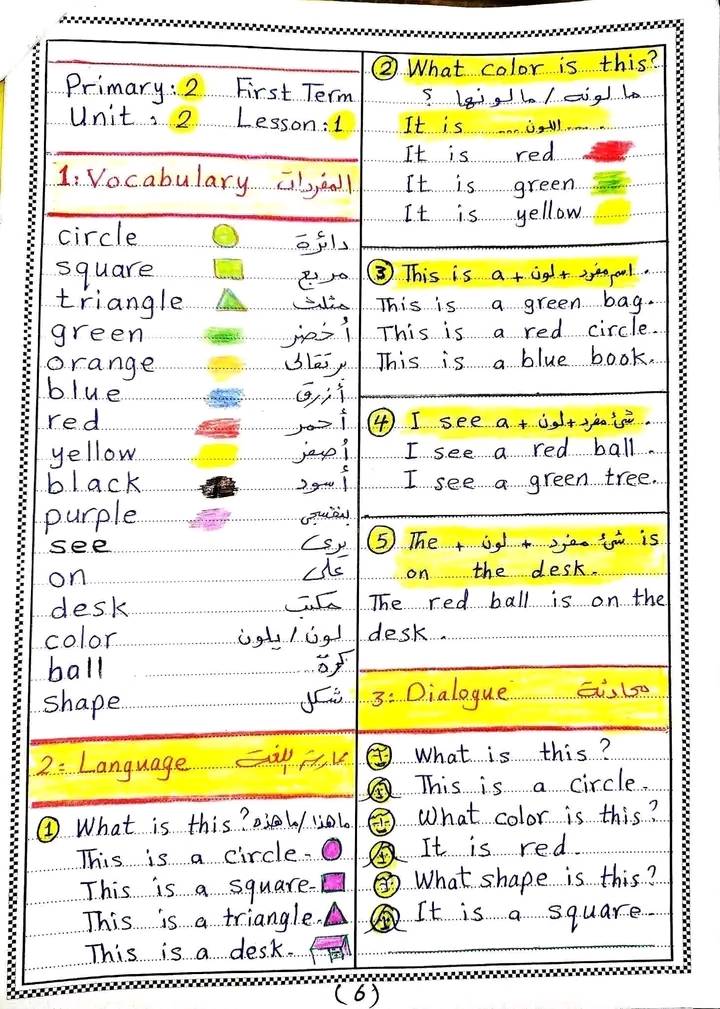 Primary: 2 First Term
Unit : 2 Lesson: 1
1: Vocabulary المفردات
circle دائرة
square مربع
triangle مثلث
green أخضر
orange برتقالى
blue أزرق
red أحمر
yellow أصفر
black أسود
purple بنفسجى
see يرى
on على
desk مكتب
color لون / يلون
ball كرة
shape شكل
2: Language
① What is this? ما هذا / ما هذه
This is a circle.
This is a square.
This is a triangle.
This is a desk.
② What color is this?
ما لونه / ما لونها ؟
It is .... اللون ....
It is red
It is green
It is yellow
③ This is a + لون + اسم مفرد .
This is a green bag.
This is a red circle.
This is a blue book.
④ I see a + لون + شئ مفرد .
I see a red ball .
I see a green tree.
⑤ The + لون + شئ مفرد is
on the desk.
The red ball is on the
desk .
3: Dialogue محادثة
What is this ?
This is a circle.
What color is this?
It is red.
What shape is this?
It is a square.
(6)